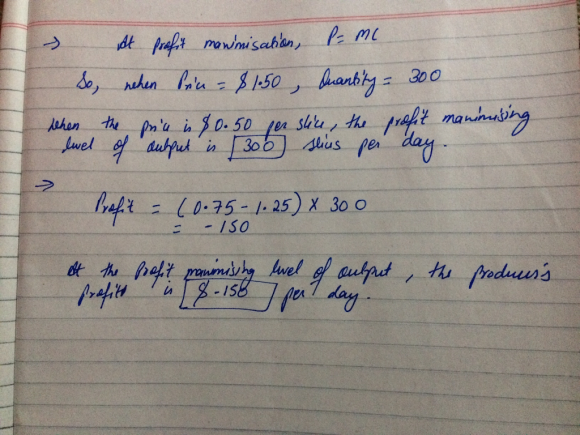 → At profit maximisation, P = MC
So, when Price = $1.50, Quantity = 300
When the price is $0.50 per slice, the profit maximising
level of output is 300 slices per day.
⇒
Profit = (0.75 - 1.25) x 300
= -150
At the Profit maximising level of output, the producer's
profit is $-150 per day.